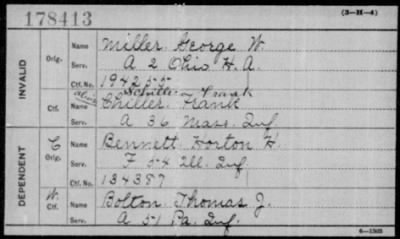 178413
(3-H-4)
INVALID
Orig.
Name Miller, George W.
Serv. A 2 Ohio H.A.
Ctf. No. 194255
alias Schiller Frank
Ctf.
Name Chiller, Frank
Serv. A 36 Mass. Inf.
DEPENDENT
C
Orig.
Name Bennett, Horton H.
Serv. F 54 Ill. Inf.
Ctf. No. 134387
W.
Ctf.
Name Bolton, Thomas J.
Serv. A 51 Pa. Inf.
6-1503